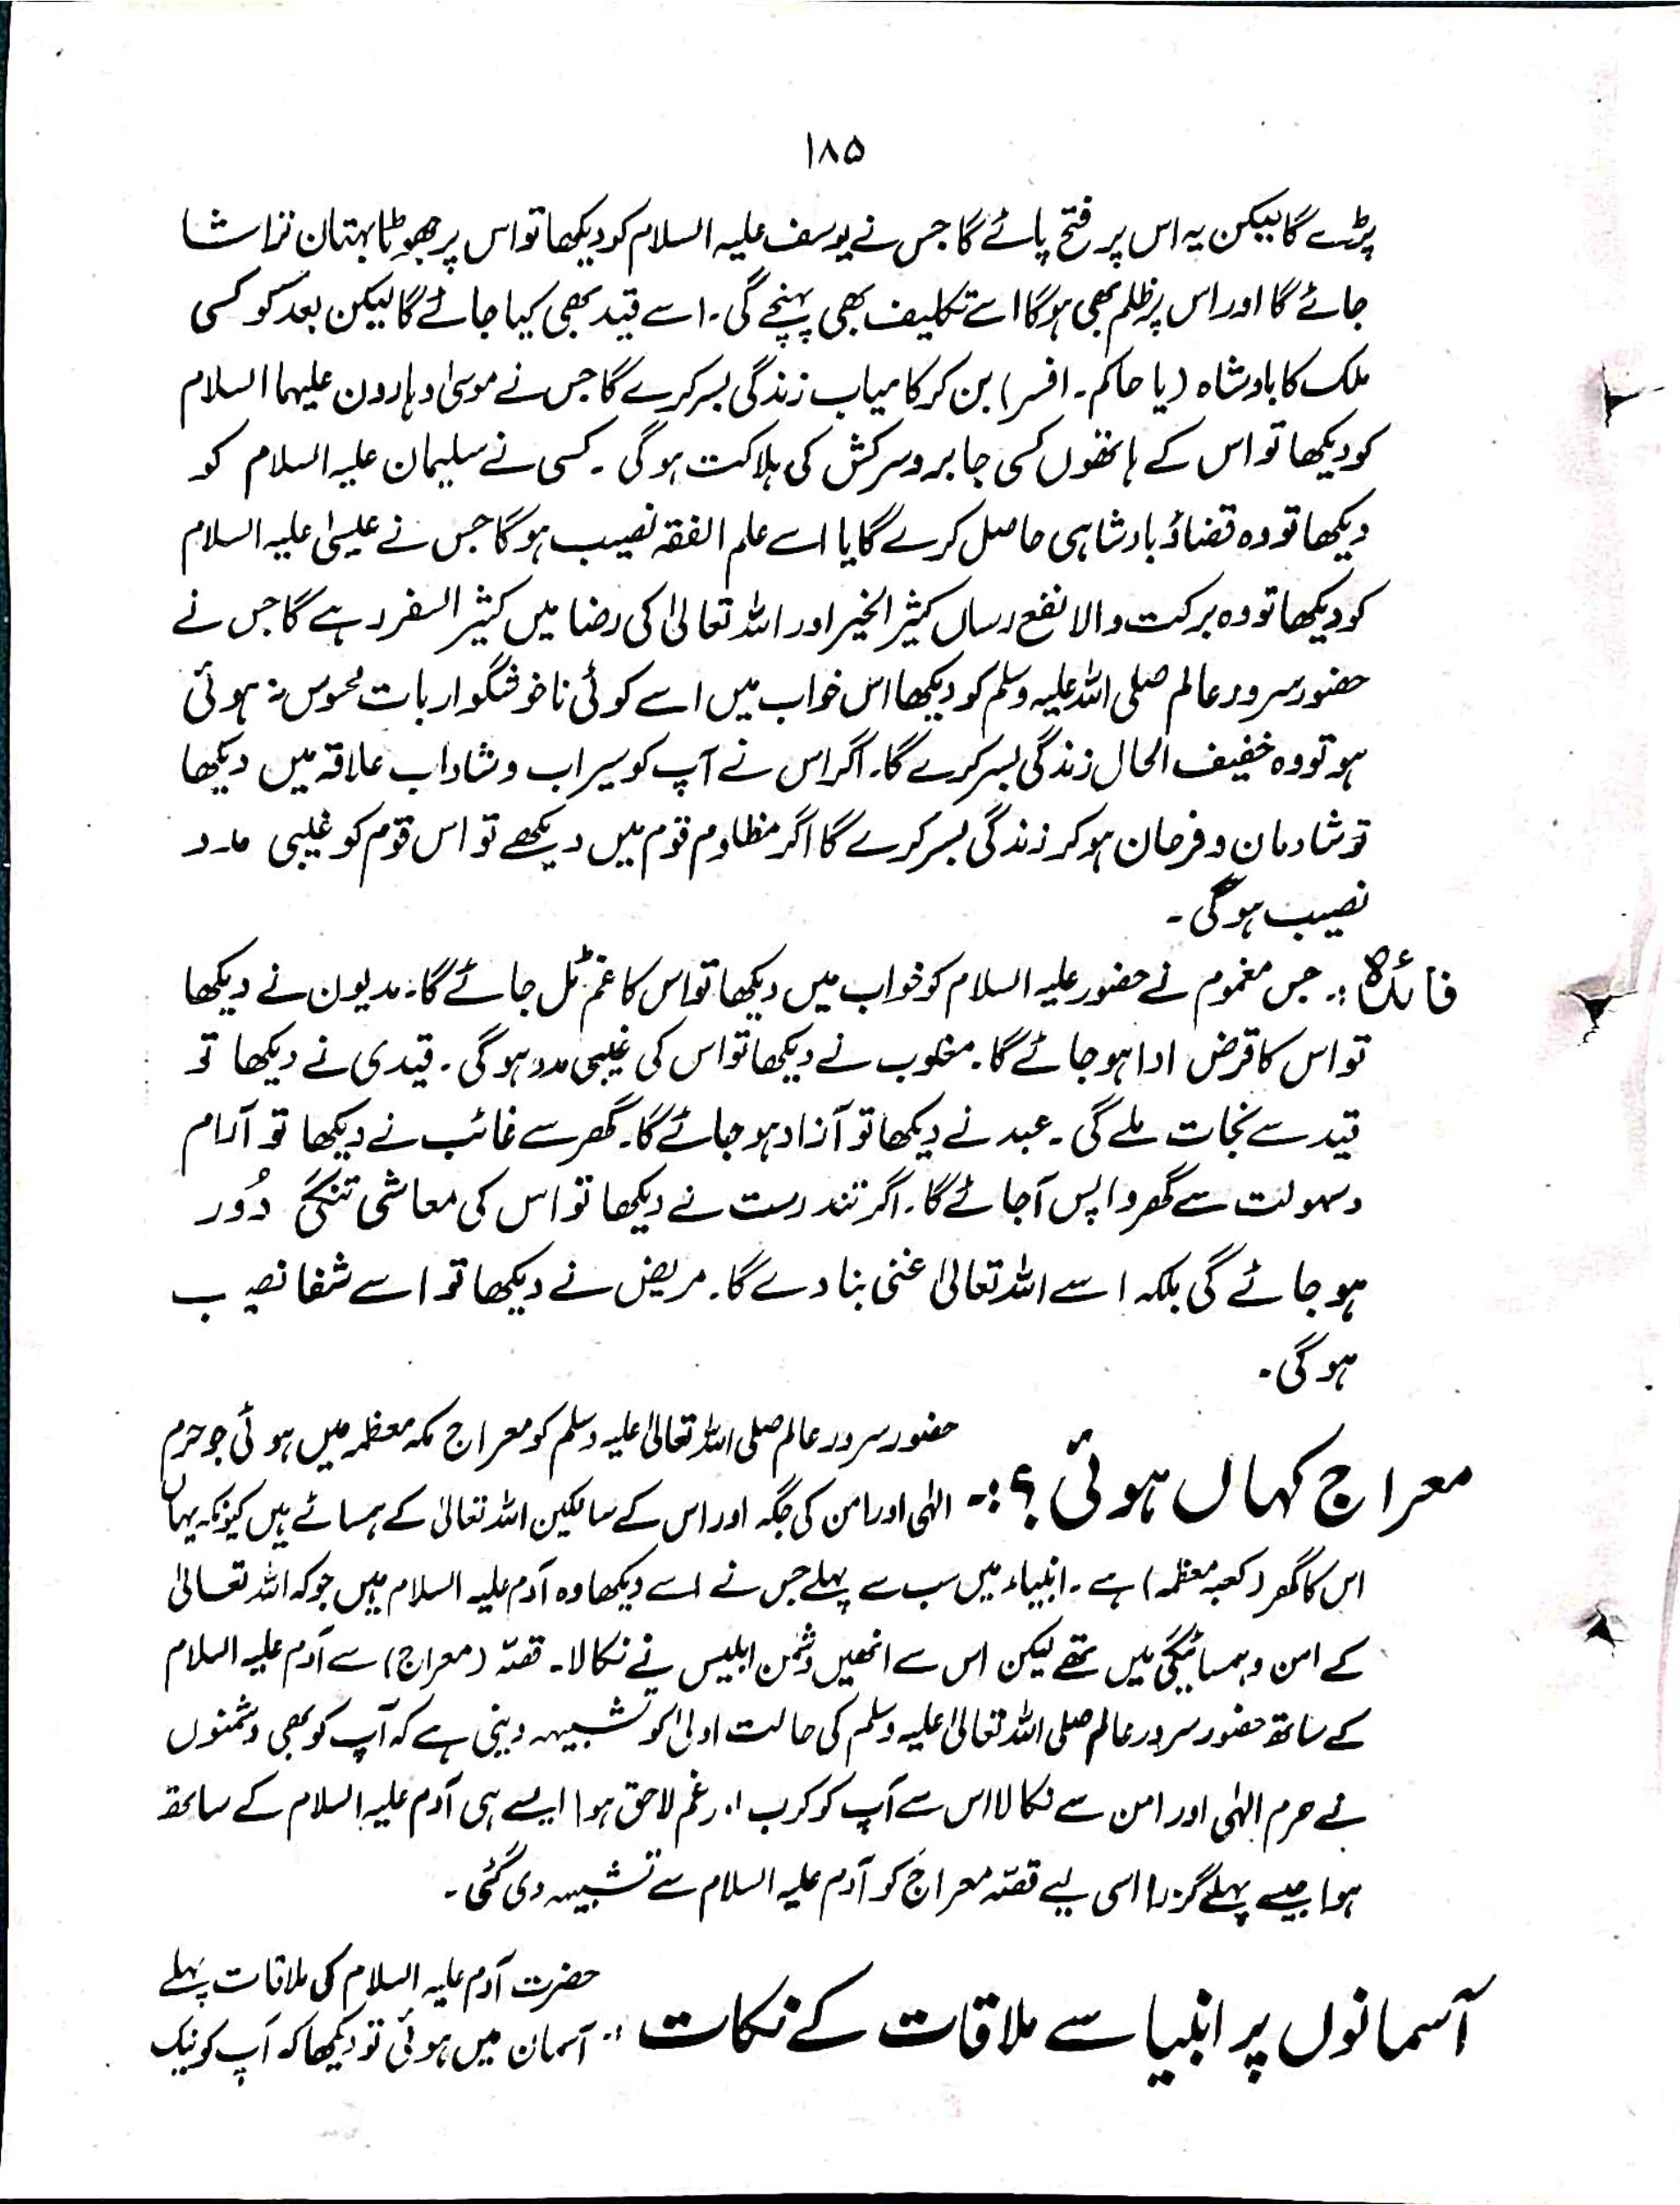 ۱۸۵
پڑے گا لیکن یہ اس پر فتح پائے گا جس نے یوسف علیہ السلام کو دیکھا تو اس پر جھوٹا بہتان تراشا
جائے گا اور اس پر ظلم بھی ہوگا اسے تکلیف بھی پہنچے گی۔ اسے قید بھی کیا جائے گا لیکن بعد کو کسی
ملک کا بادشاہ (یا حاکم۔ افسر) بن کر کامیاب زندگی بسر کرے گا جس نے موسیٰ و ہارون علیہما السلام
کو دیکھا تو اس کے ہاتھوں کسی جابر و سرکش کی ہلاکت ہوگی۔ کسی نے سلیمان علیہ السلام کو
دیکھا تو وہ قضاؤ بادشاہی حاصل کرے گا یا اسے علم الفقہ نصیب ہوگا جس نے عیسیٰ علیہ السلام
کو دیکھا تو وہ برکت والا نفع رساں کثیر الخیر اور اللہ تعالیٰ کی رضا میں کثیر السفر رہے گا جس نے
حضور سرور عالم صلی اللہ علیہ وسلم کو دیکھا اس خواب میں اسے کوئی ناخوشگوار بات محسوس نہ ہوئی
ہو تو وہ خفیف الحال زندگی بسر کرے گا۔ اگر اس نے آپ کو سیراب و شاداب علاقہ میں دیکھا
تو شادمان و فرحان ہو کر زندگی بسر کرے گا اگر مظلوم قوم میں دیکھے تو اس قوم کو غیبی مدد
نصیب ہوگی۔
فائدہ :۔ جس مغموم نے حضور علیہ السلام کو خواب میں دیکھا تو اس کا غم ٹل جائے گا۔ مدیون نے دیکھا
تو اس کا قرض ادا ہو جائے گا۔ مغلوب نے دیکھا تو اس کی غیبی مدد ہوگی۔ قیدی نے دیکھا تو
قید سے نجات ملے گی۔ عبد نے دیکھا تو آزاد ہو جائے گا۔ گھر سے غائب نے دیکھا تو آرام
و سہولت سے گھر واپس آ جائے گا۔ اگر تندرست نے دیکھا تو اس کی معاشی تنگی دُور
ہو جائے گی بلکہ اسے اللہ تعالیٰ غنی بنا دے گا۔ مریض نے دیکھا تو اسے شفا نصیب
ہوگی۔
معراج کہاں ہوئی ؟ :۔ حضور سرور عالم صلی اللہ تعالیٰ علیہ وسلم کو معراج مکہ معظمہ میں ہوئی جو حرم
الٰہی اور امن کی جگہ اور اس کے ساکنین اللہ تعالیٰ کے ہمسائے ہیں کیونکہ یہاں
اس کا گھر (کعبہ معظمہ) ہے۔ انبیاء میں سب سے پہلے جس نے اسے دیکھا وہ آدم علیہ السلام ہیں جو کہ اللہ تعالیٰ
کے امن و ہمسائیگی میں تھے لیکن اس سے انھیں دشمن ابلیس نے نکالا۔ قصّہ (معراج) سے آدم علیہ السلام
کے ساتھ حضور سرور عالم صلی اللہ تعالیٰ علیہ وسلم کی حالت اولیٰ کو تشبیہہ دینی ہے کہ آپ کو بھی دشمنوں
نے حرم الٰہی اور امن سے نکالا اس سے آپ کو کرب اور غم لاحق ہوا ایسے ہی آدم علیہ السلام کے ساتھ
ہوا جیسے پہلے گزرا اسی لیے قصّہ معراج کو آدم علیہ السلام سے تشبیہہ دی گئی۔
آسمانوں پر انبیا سے ملاقات کے نکات :۔ حضرت آدم علیہ السلام کی ملاقات پہلے
آسمان میں ہوئی تو دیکھا کہ آپ کو نیک